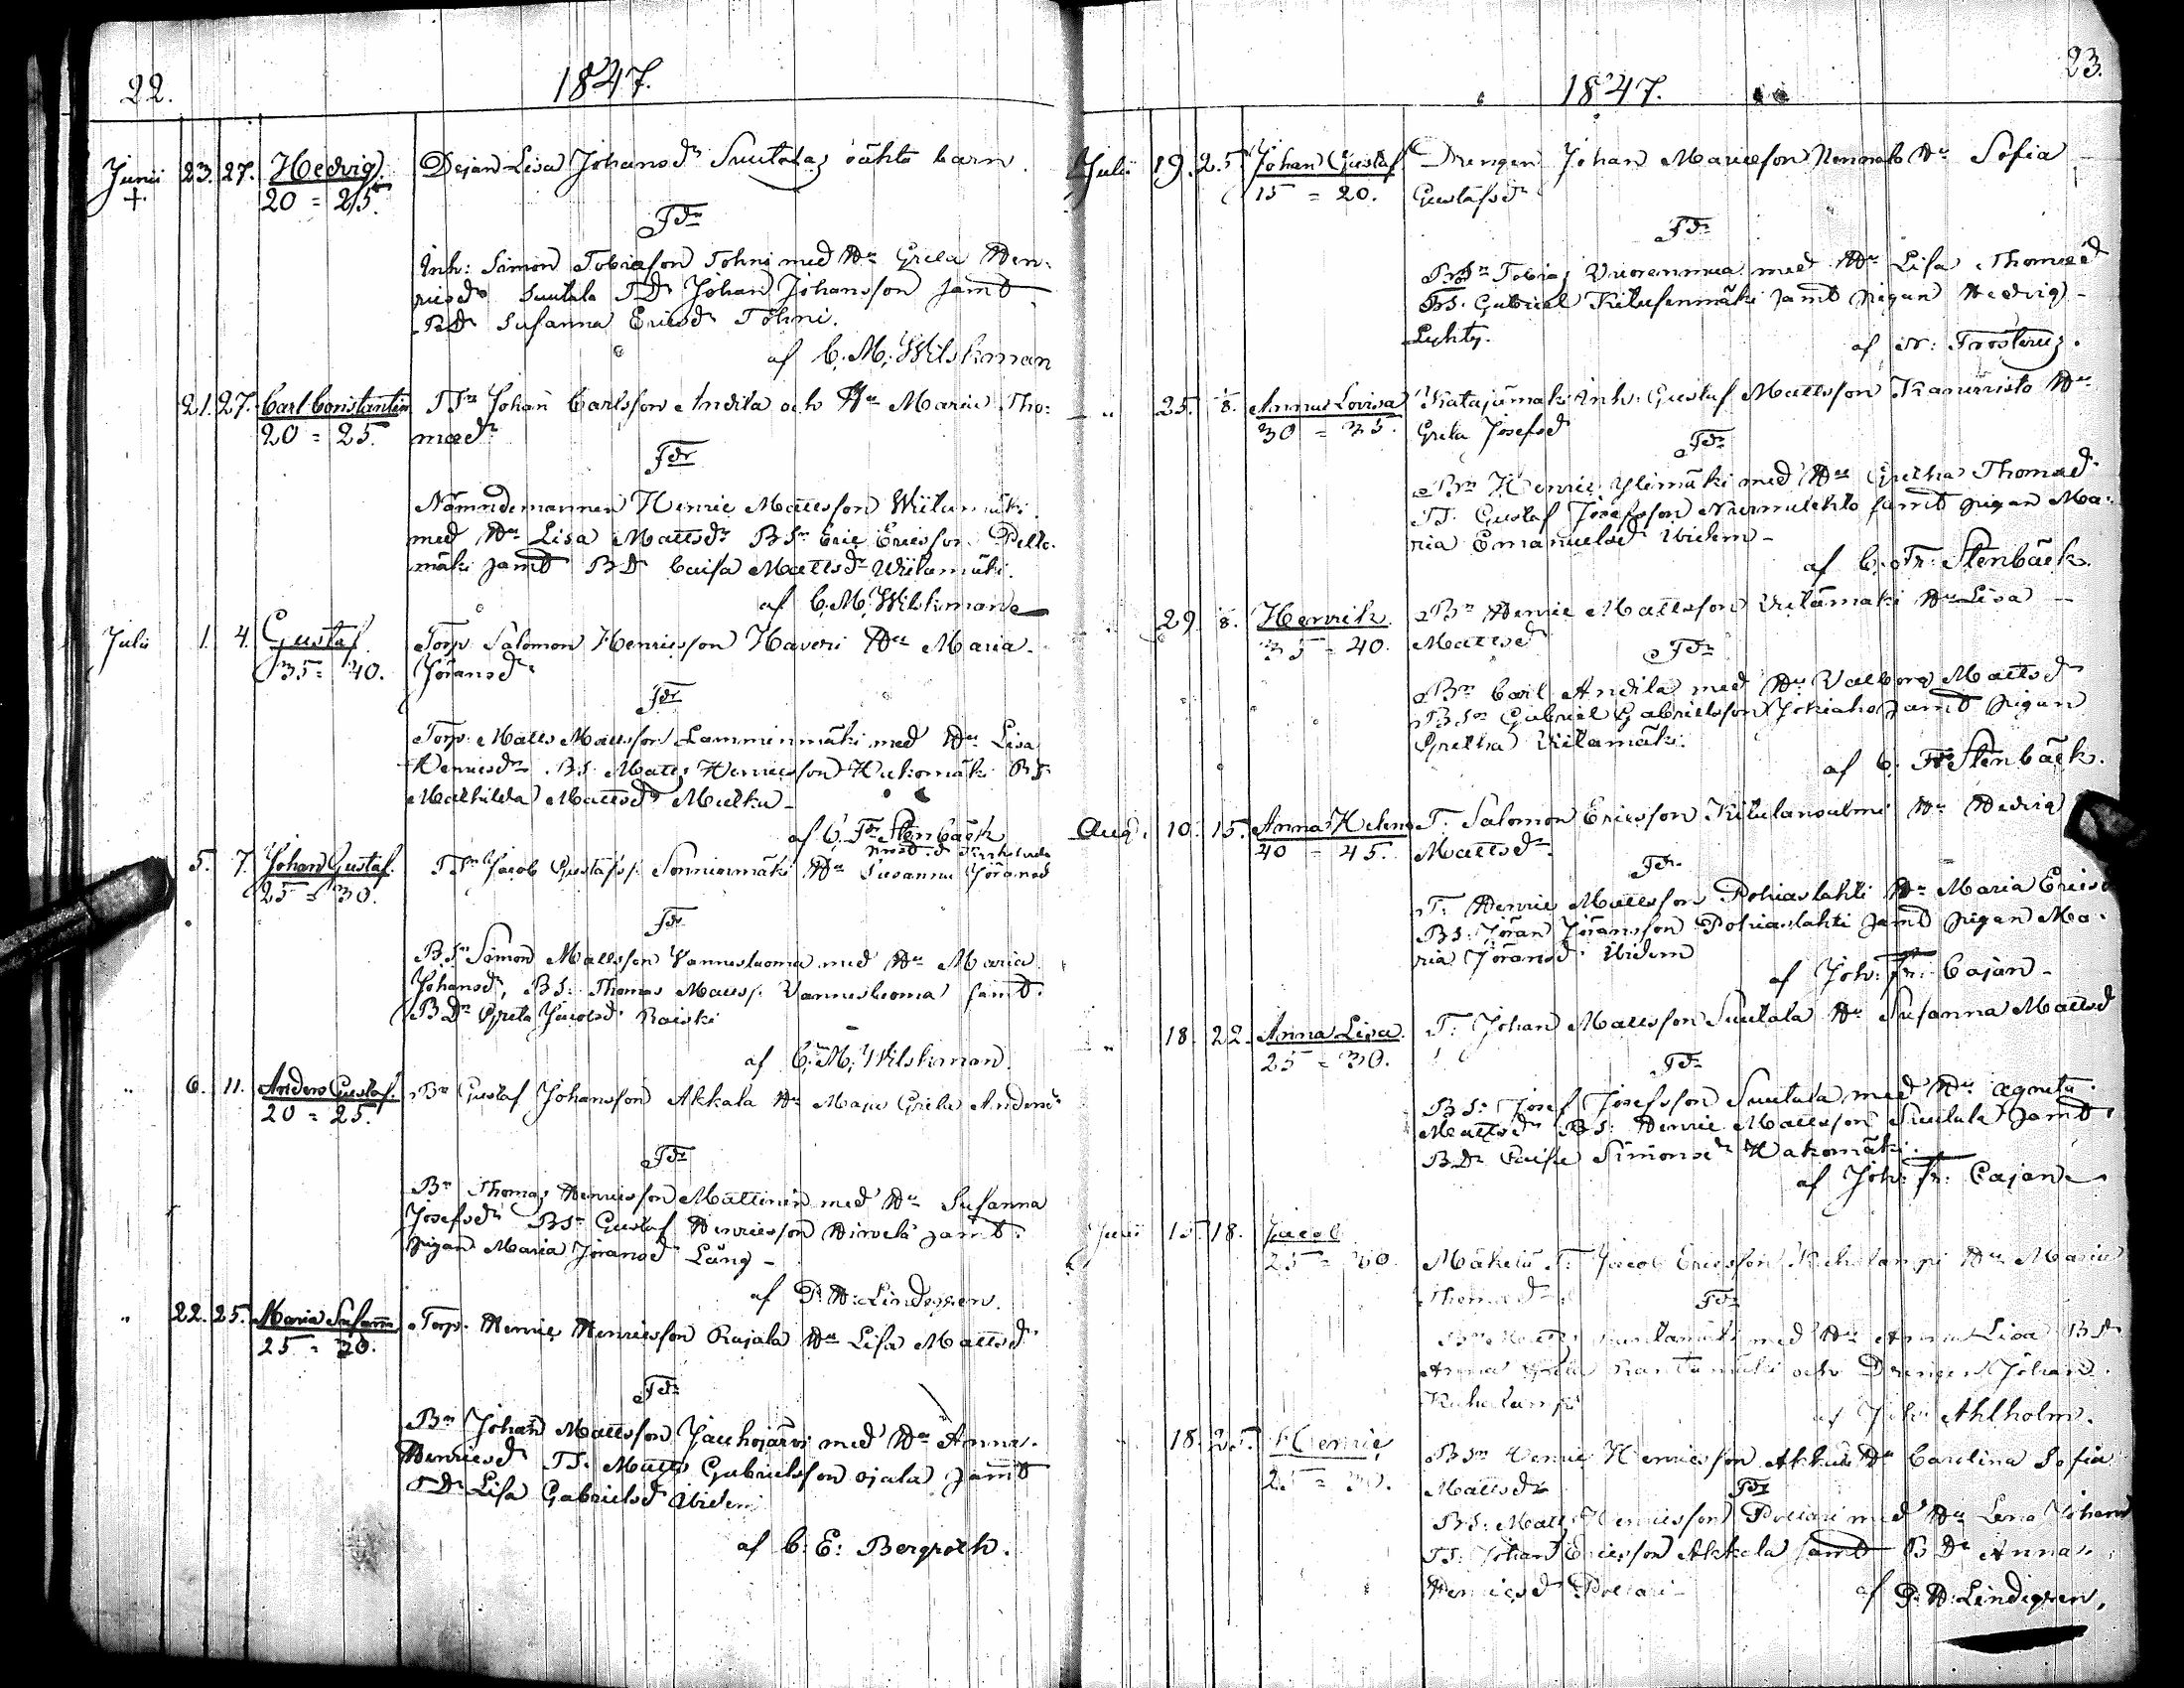 22.
1847.
Junii 23. 27. Hedvig. Dejan Lisa Johansdr Suutalas oäkta barn
+. 20 = 25.
Fdr
Inh: Simon Tobiasson Tohni med Hu Greta Hen-
ricsdr Suutala TDr Johan Johansson samt
BDr Susanna Ericsdr Tohni.
af C. M. Wilskman
21. 27. Carl Constantin TSn Johan Carlsson Andila och Hu Maria Tho-
20 = 25. masdr
Fdr
Nämndemannen Henric Mattsson Wiitamäki
med Hu Lisa Mattsdr BSn Eric Ericsson Pelto-
mäki samt BD Caisa Mattsdr Wiitamäki.
af C. M. Wilskman
Julii 1. 4. Gustaf. Torp. Salomon Henricsson Haveri Hu Maria
35 = 40. Jöransdr
Fdr
Torp. Matts Mattsson Lamminmäki med Hu Lisa
Henricsdr. BS. Matts Henricsson Hukomäki BD
Mathilda Mattsdr Mulku
af C. Fr. Stenbäck
5. 7. Johan Gustaf. TSn Jacob Gustafss. Sonnionmäki Hu Susanna Jöransd
25 = 30.
Fdr
BSn Simon Mattsson Vannesluoma med Hu Maria
Johansdr, BS: Thomas Mattss. Vannesluoma samt
BDr Greta Jacobsd. Koiski
af C. M. Wilskman
" 6. 11. Anders Gustaf. Bn Gustaf Johansson Akkala Hu Maja Greta Andersdr
20 = 25.
Fdr
Bn Thomas Henricsson Mattinen med Hu Susanna
Josefsdr BSn Gustaf Henricsson Hirvelä samt
pigan Maria Jöransd Lång
af P. H. Lindegren.
" 22. 25. Maria Susanna Torp. Henric Henricsson Rajala Hu Lisa Mattsdr
25 = 30.
Fdr
Bn Johan Mattsson Jauhojärvi med Hu Anna
Henricsd TS. Matts Gabrielsson Ojala samt
TDr Lisa Gabrielsd ibidem
af C: E: Bergroth.
23.
1847.
Julii 19. 25. Johan Gustaf. Drengen Johan Mariasson Hu Sofia
15 = 20. Gustafsdr
Fdr
Tobias Vuorenmaa med Hu Lisa Thomasd
BS. Gabriel Kitusenmäki samt pigan Hedvig
Luhty.
af N: Frosterus.
" 25. 8. Anna Lovisa Katajamäki Inh. Gustaf Mattsson Kanervisto Hu
30 = 35. Greta Josefsd
Fdr
Bn Henric Ylimäki med Hu Gretha Thomasd
TS. Gustaf Josefsson Nurmulehto samt pigan Ma-
ria Emanuelsd ibidem
af C. Fr: Stenbäck.
29. 8. Henrik. Bn Henric Mattsson Viitamäki Hu Lisa
35 = 40. Mattsd
Fdr
Bn Carl Andila med Hu Valborg Mattsdr
BSn Gabriel Gabrielsson Jokiaho samt pigan
Gretha Viitamäki.
af C. Fr Stenbäck.
Aug. 10. 15. Anna Helena T. Salomon Ericsson Kitulansalmi Hu Hedvig
40 = 45. Mattsdr.
Fdr.
T. Henric Mattsson Pohiaslahti Hu Maria Ericsd
BS. Jöran Jöransson Pohiaslahti samt pigan Ma-
ria Jöransd. ibidem
af Joh. Fr. Cajan
" 18. 22. Anna Lisa. T. Johan Mattsson Suutala Hu Susanna Mattsd
25 = 30.
Fdr
BS: Josef Josefsson Suutala med Hu Agneta
Mattsdr BS: Henric Mattsson Suutala samt
BDr Caisa Simonsdr Hakomäki.
af Joh. Fr. Cajan
Junii 15. 18. Jacob
25 = 30. Mäkelä T. Jacob Ericsson Kuhalampi Hu Maria
Thomasdr
Fdr
med Hu Anna Lisa BDr
Anna Greta Rantamäki och Drengen Johan
Kuhalampi
af Joh. Ahlholm.
18. 25. Henric BSn Henric Henricsson Akkala Hu Carolina Sofia
25 = 30. Mattsdr
Fdr
BS. Matts Henricsson Pollari med Hu Lena Johansd
TS. Johan Ericsson Akkala samt BDr Anna
Henricsd Pollari
af P. H. Lindegren,